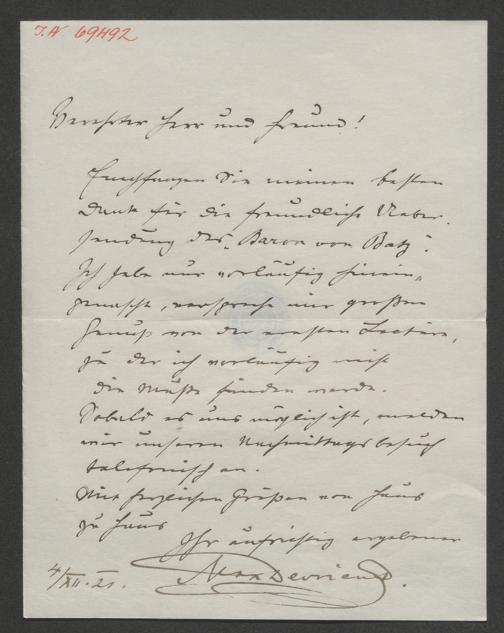 I.N. 69492
Verehrter Herr und Freund!
Empfangen Sie meinen besten
Dank für die freundliche Ueber-
sendung des "Baron von Batz".
Ich habe nur vorläufig hinein-
genascht, verspreche mir großen
Genuß von der ernsten Lectüre,
zu der ich vorläufig nicht
die Muße finden werde.
Sobald es uns möglich ist, melden
wir unseren Nachmittagsbesuch
telefonisch an.
Mit herzlichen Grüßen von Haus
zu Haus
Ihr aufrichtig ergebener
Max Devrient.
4/XII. 21.